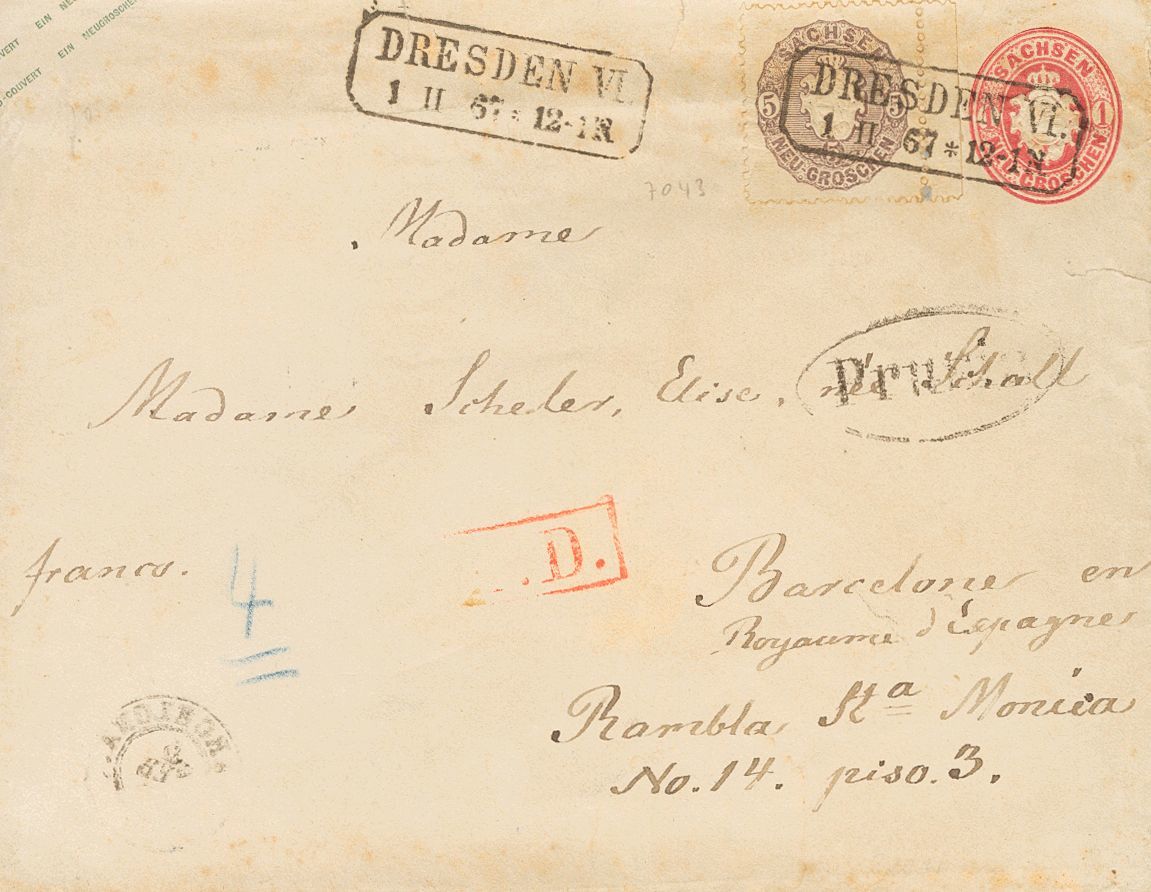 EIN NEU
VERT EIN NEUGROSCHEN
-COUVERT
DRESDEN VI.
1 II 67 * 12-1 N
SACHSEN
5 5
NEU-GROSCHEN
DRESDEN VI.
1 II 67 * 12-1 N
SACHSEN
1 1
NEU-GROSCHEN
7043
Madame
Madame Scheler, Elise, née Schall
.D.
franco.
4
Barcelone en
Royaume d'Espagne
Rambla Sta Monica
No. 14. piso. 3.